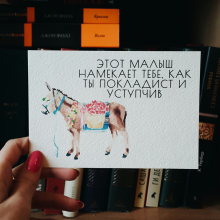 ЭТОТ МАЛЫШ
НАМЕКАЕТ ТЕБЕ, КАК
ТЫ ПОКЛАДИСТ И
УСТУПЧИВ